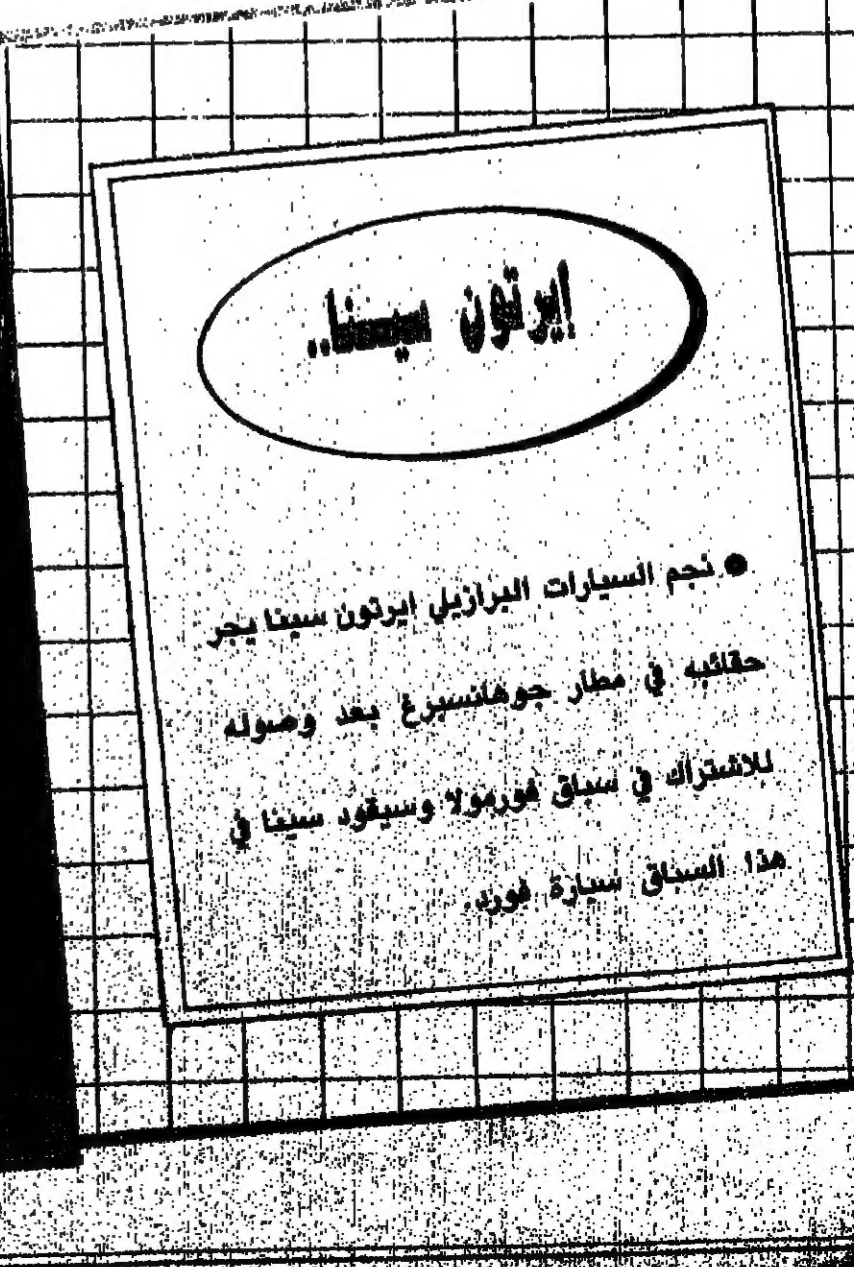 إيرتون سينا..
● نجم السيارات البرازيلي ايرتون سينا يجر
حقائبه في مطار جوهانسبرغ بعد وصوله
للاشتراك في سباق فورمولا وسيقود سينا في
هذا السباق سيارة فورد.